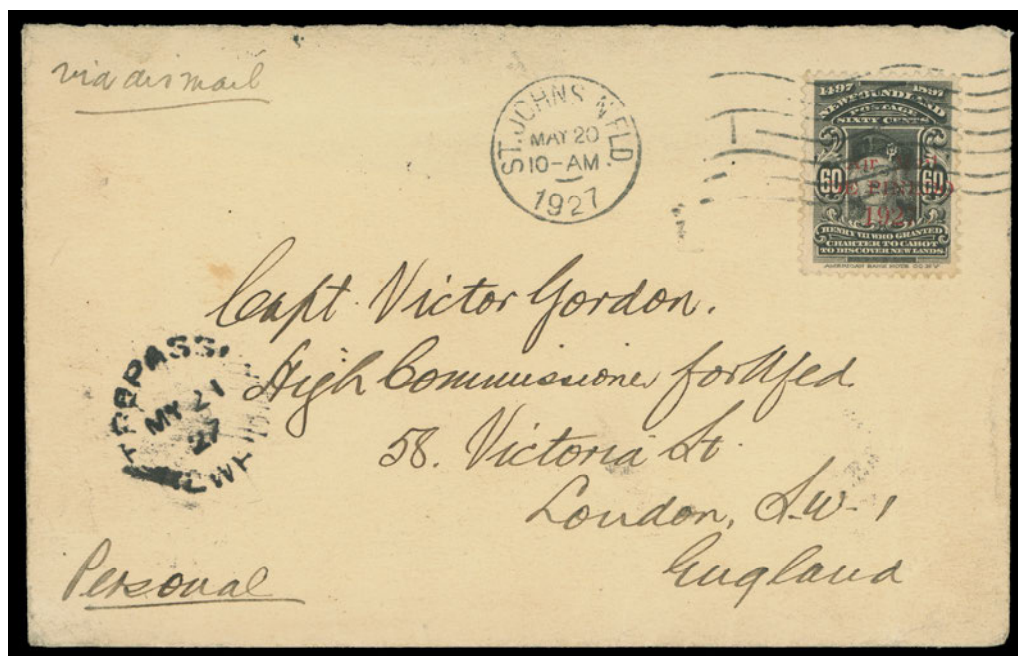 via air mail
ST. JOHNS N'FLD.
MAY 20
10-AM
1927
1497 1897
NEWFOUNDLAND
POSTAGE
SIXTY CENTS
60 60
AIR
DE PINEDO
1927
HENRY VII WHO GRANTED
CHARTER TO CABOT
TO DISCOVER NEW LANDS
AMERICAN BANK NOTE CO. N.Y.
Capt. Victor Gordon.
High Commissioner for Nfld.
58. Victoria St
London, S.W. 1
England
TREPASSE
MY 21
27
NEWF
Personal